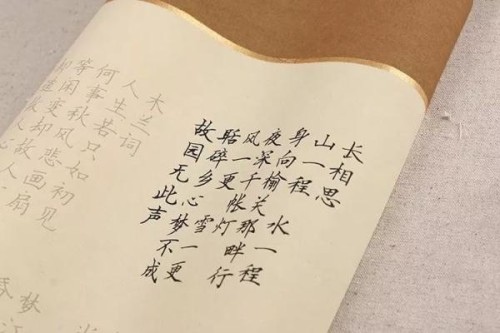 长相思
山一程 水一程
身向榆关那畔行
夜深千帐灯
风一更 雪一更
聒碎乡心梦不成
故园无此声
木兰词
人生若只如初见
何事秋风悲画扇
等闲变却故人心
梦江